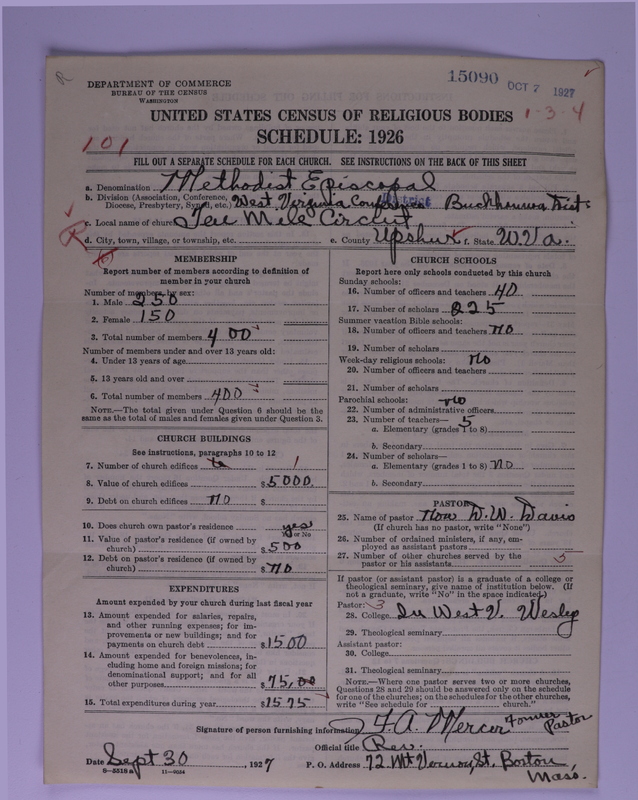 15090 OCT 7 1927
R
DEPARTMENT OF COMMERCE
BUREAU OF THE CENSUS
WASHINGTON
1-3-4
UNITED STATES CENSUS OF RELIGIOUS BODIES
101
SCHEDULE: 1926
FILL OUT A SEPARATE SCHEDULE FOR EACH CHURCH. SEE INSTRUCTIONS ON THE BACK OF THIS SHEET
a. Denomination Methodist Episcopal
b. Division (Association, Conference, Diocese, Presbytery, Synod, etc.) West Virginia Conference District
c. Local name of church Ten Mile Circuit
d. City, town, village, or township, etc. e. County Upshur f. State W.Va.
MEMBERSHIP
Report number of members according to definition of
member in your church
Number of members, by sex:
1. Male 250
2. Female 150
3. Total number of members 400
Number of members under and over 13 years old:
4. Under 13 years of age
5. 13 years old and over
6. Total number of members 400
NOTE.—The total given under Question 6 should be the
same as the total of males and females given under Question 3.
CHURCH BUILDINGS
See instructions, paragraphs 10 to 12
7. Number of church edifices 1
8. Value of church edifices $5000.
9. Debt on church edifices no $
10. Does church own pastor's residence yes
Yes or No
11. Value of pastor's residence (if owned by
church) $500
12. Debt on pastor's residence (if owned by
church) $no
EXPENDITURES
Amount expended by your church during last fiscal year
13. Amount expended for salaries, repairs,
and other running expenses; for im-
provements or new buildings; and for
payments on church debt $1500
14. Amount expended for benevolences, in-
cluding home and foreign missions; for
denominational support; and for all
other purposes $75,00
15. Total expenditures during year $1575
CHURCH SCHOOLS
Report here only schools conducted by this church
Sunday schools:
16. Number of officers and teachers 40
17. Number of scholars 225
Summer vacation Bible schools:
18. Number of officers and teachers no
19. Number of scholars
Week-day religious schools: no
20. Number of officers and teachers
21. Number of scholars
Parochial schools: no
22. Number of administrative officers
23. Number of teachers—
a. Elementary (grades 1 to 8) 5
b. Secondary
24. Number of scholars—
a. Elementary (grades 1 to 8) no
b. Secondary
PASTOR
25. Name of pastor Now D.W. Davis
(If church has no pastor, write "None")
26. Number of ordained ministers, if any, em-
ployed as assistant pastors
27. Number of other churches served by the
pastor or his assistants 5
If pastor (or assistant pastor) is a graduate of a college or
theological seminary, give name of institution below. (If
not a graduate, write "No" in the space indicated.)
Pastor: 3
28. College In West V. Wesley
29. Theological seminary
Assistant pastor:
30. College
31. Theological seminary
NOTE.—Where one pastor serves two or more churches,
Questions 28 and 29 should be answered only on the schedule
for one of the churches; on the schedules for the other churches,
write "See schedule for church."
Signature of person furnishing information F. A. Mercer Former Pastor
Official title Rev.
Date Sept 30, 1927 P. O. Address 72 Mt Vernon St. Boston, Mass.
8-5518 a 11-9064